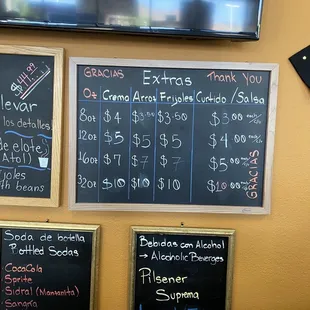 $44.99
llevar
los detalles
de elote
Atol)
joles
th beans
GRACIAS Extras Thank you
Oz Crema Arros Frijoles Curtido/Salsa
8oz $4 $3.50 $3.50 $3.00
12oz $5 $5 $5 $4.00
16oz $7 $7 $7 $5.00
32oz $10 $10 $10 $10.00
GRACIAS
Soda de botella
Bottled Sodas
CocaCola
Sprite
Sidral (Manzanita)
Sangría
Bebidas con Alcohol
→ Alcoholic Beverages
Pilsener
Suprema